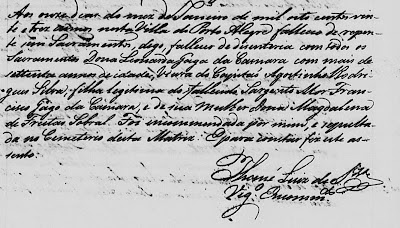 Aos nove dias do mez de Janeiro de mil oito centos vin-
te e tres annos nesta Villa de Porto Alegre falleceo de repen-
te sem Sacramentos, digo, falleceo de disenteria com todos os
Sacramentos Dona Leonarda Jaga da Camara com mais de
settenta annos de idade, Viuva do Capitão Agostinho Rodri-
gues Silva, filha legitima do fallecido Sargento Mor Fran-
cisco Jago da Camara, e de sua Mulher Dona Magdalena
de Freitas Sobral. Foi incommendada por mim, e sepulta-
da no Cemeterio desta Matriz. E para constar fiz este as-
sento.
Thomé Luiz de
Vigº. Encommdº